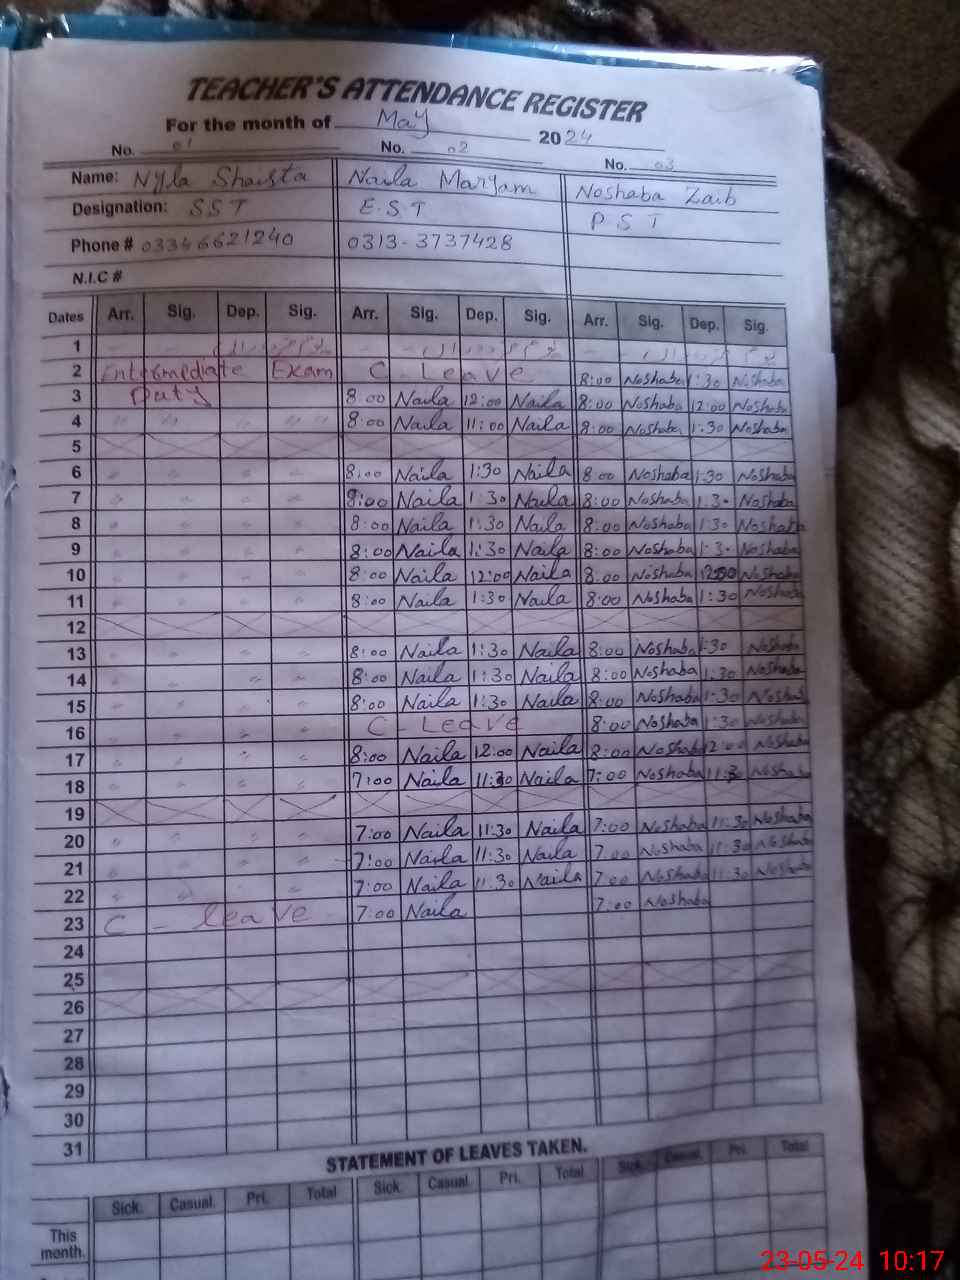 TEACHER'S ATTENDANCE REGISTER
For the month of May 2024
No. 01 No. 02 No. 03
Name: Nyla Shaista Naila Maryam Noshaba Zaib
Designation: SST E.S.T P S T
Phone # 03346621240 0313-3737428
N.I.C #
Dates Arr. Sig. Dep. Sig. Arr. Sig. Dep. Sig. Arr. Sig. Dep. Sig.
1
2 Intermediate Exam C - Leave 8:00 Noshaba 1:30 Noshaba
3 Duty 8:00 Naila 12:00 Naila 8:00 Noshaba 12:00 Noshaba
4 " " " " 8:00 Naila 11:00 Naila 8:00 Noshaba 1:30 Noshaba
5
6 " " " " 8:00 Naila 1:30 Naila 8:00 Noshaba 1:30 Noshaba
7 " " " " 8:00 Naila 1:30 Naila 8:00 Noshaba 1:30 Noshaba
8 " " " " 8:00 Naila 1:30 Naila 8:00 Noshaba 1:30 Noshaba
9 " " " " 8:00 Naila 1:30 Naila 8:00 Noshaba 1:30 Noshaba
10 " " " " 8:00 Naila 12:00 Naila 8:00 Noshaba 12:00 Noshaba
11 " " " " 8:00 Naila 1:30 Naila 8:00 Noshaba 1:30 Noshaba
12
13 " " " " 8:00 Naila 1:30 Naila 8:00 Noshaba 1:30 Noshaba
14 " " " " 8:00 Naila 1:30 Naila 8:00 Noshaba 1:30 Noshaba
15 " " " " 8:00 Naila 1:30 Naila 8:00 Noshaba 1:30 Noshaba
16 " " " " C - Leave 8:00 Noshaba 1:30 Noshaba
17 " " " " 8:00 Naila 12:00 Naila 8:00 Noshaba 12:00 Noshaba
18 " " " " 7:00 Naila 11:30 Naila 7:00 Noshaba 11:30 Noshaba
19
20 " " " " 7:00 Naila 11:30 Naila 7:00 Noshaba 11:30 Noshaba
21 " " " " 7:00 Naila 11:30 Naila 7:00 Noshaba 11:30 Noshaba
22 " " " " 7:00 Naila 11:30 Naila 7:00 Noshaba 11:30 Noshaba
23 C - leave 7:00 Naila 7:00 Noshaba
24
25
26
27
28
29
30
31
STATEMENT OF LEAVES TAKEN.
Sick. Casual. Pri. Total Sick. Casual. Pri. Total Sick. Casual. Pri. Total
This
month.
23-05-24 10:17